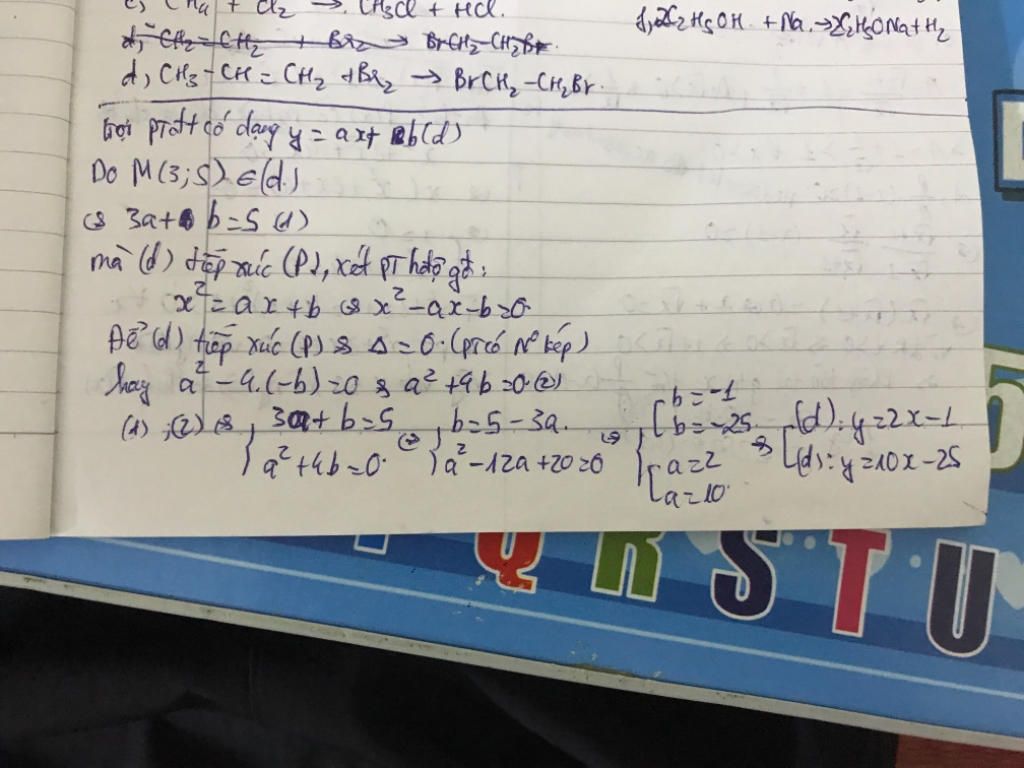 c, CH4 + Cl2 → CH3Cl + HCl.
d, 2C2H5OH + Na → 2C2H5ONa + H2
d, CH2 = CH2 + Br2 → BrCH2-CH2Br.
d, CH3-CH=CH2 + Br2 → BrCH2-CH2Br.
Gọi ptđt có dạng y = ax + b (d)
Do M(3;5) ∈ (d)
⇔ 3a + b = 5 (1)
mà (d) tiếp xúc (P), xét PT hđộ gđ:
x² = ax + b ⇔ x² - ax - b = 0.
Để (d) tiếp xúc (P) ⇔ Δ = 0. (pt có N° kép)
hay a² - 4.(-b) = 0 ⇔ a² + 4b = 0. (2)
(1), (2) ⇔ { 3a + b = 5 ; a² + 4b = 0. ⇔ { b = 5 - 3a. ; a² - 12a + 20 = 0 ⇔ { [ b = -1 ; b = -25. ; [ a = 2 ; a = 10. ⇔ [ (d): y = 2x - 1 ; (d): y = 10x - 25
5
Q R S T U